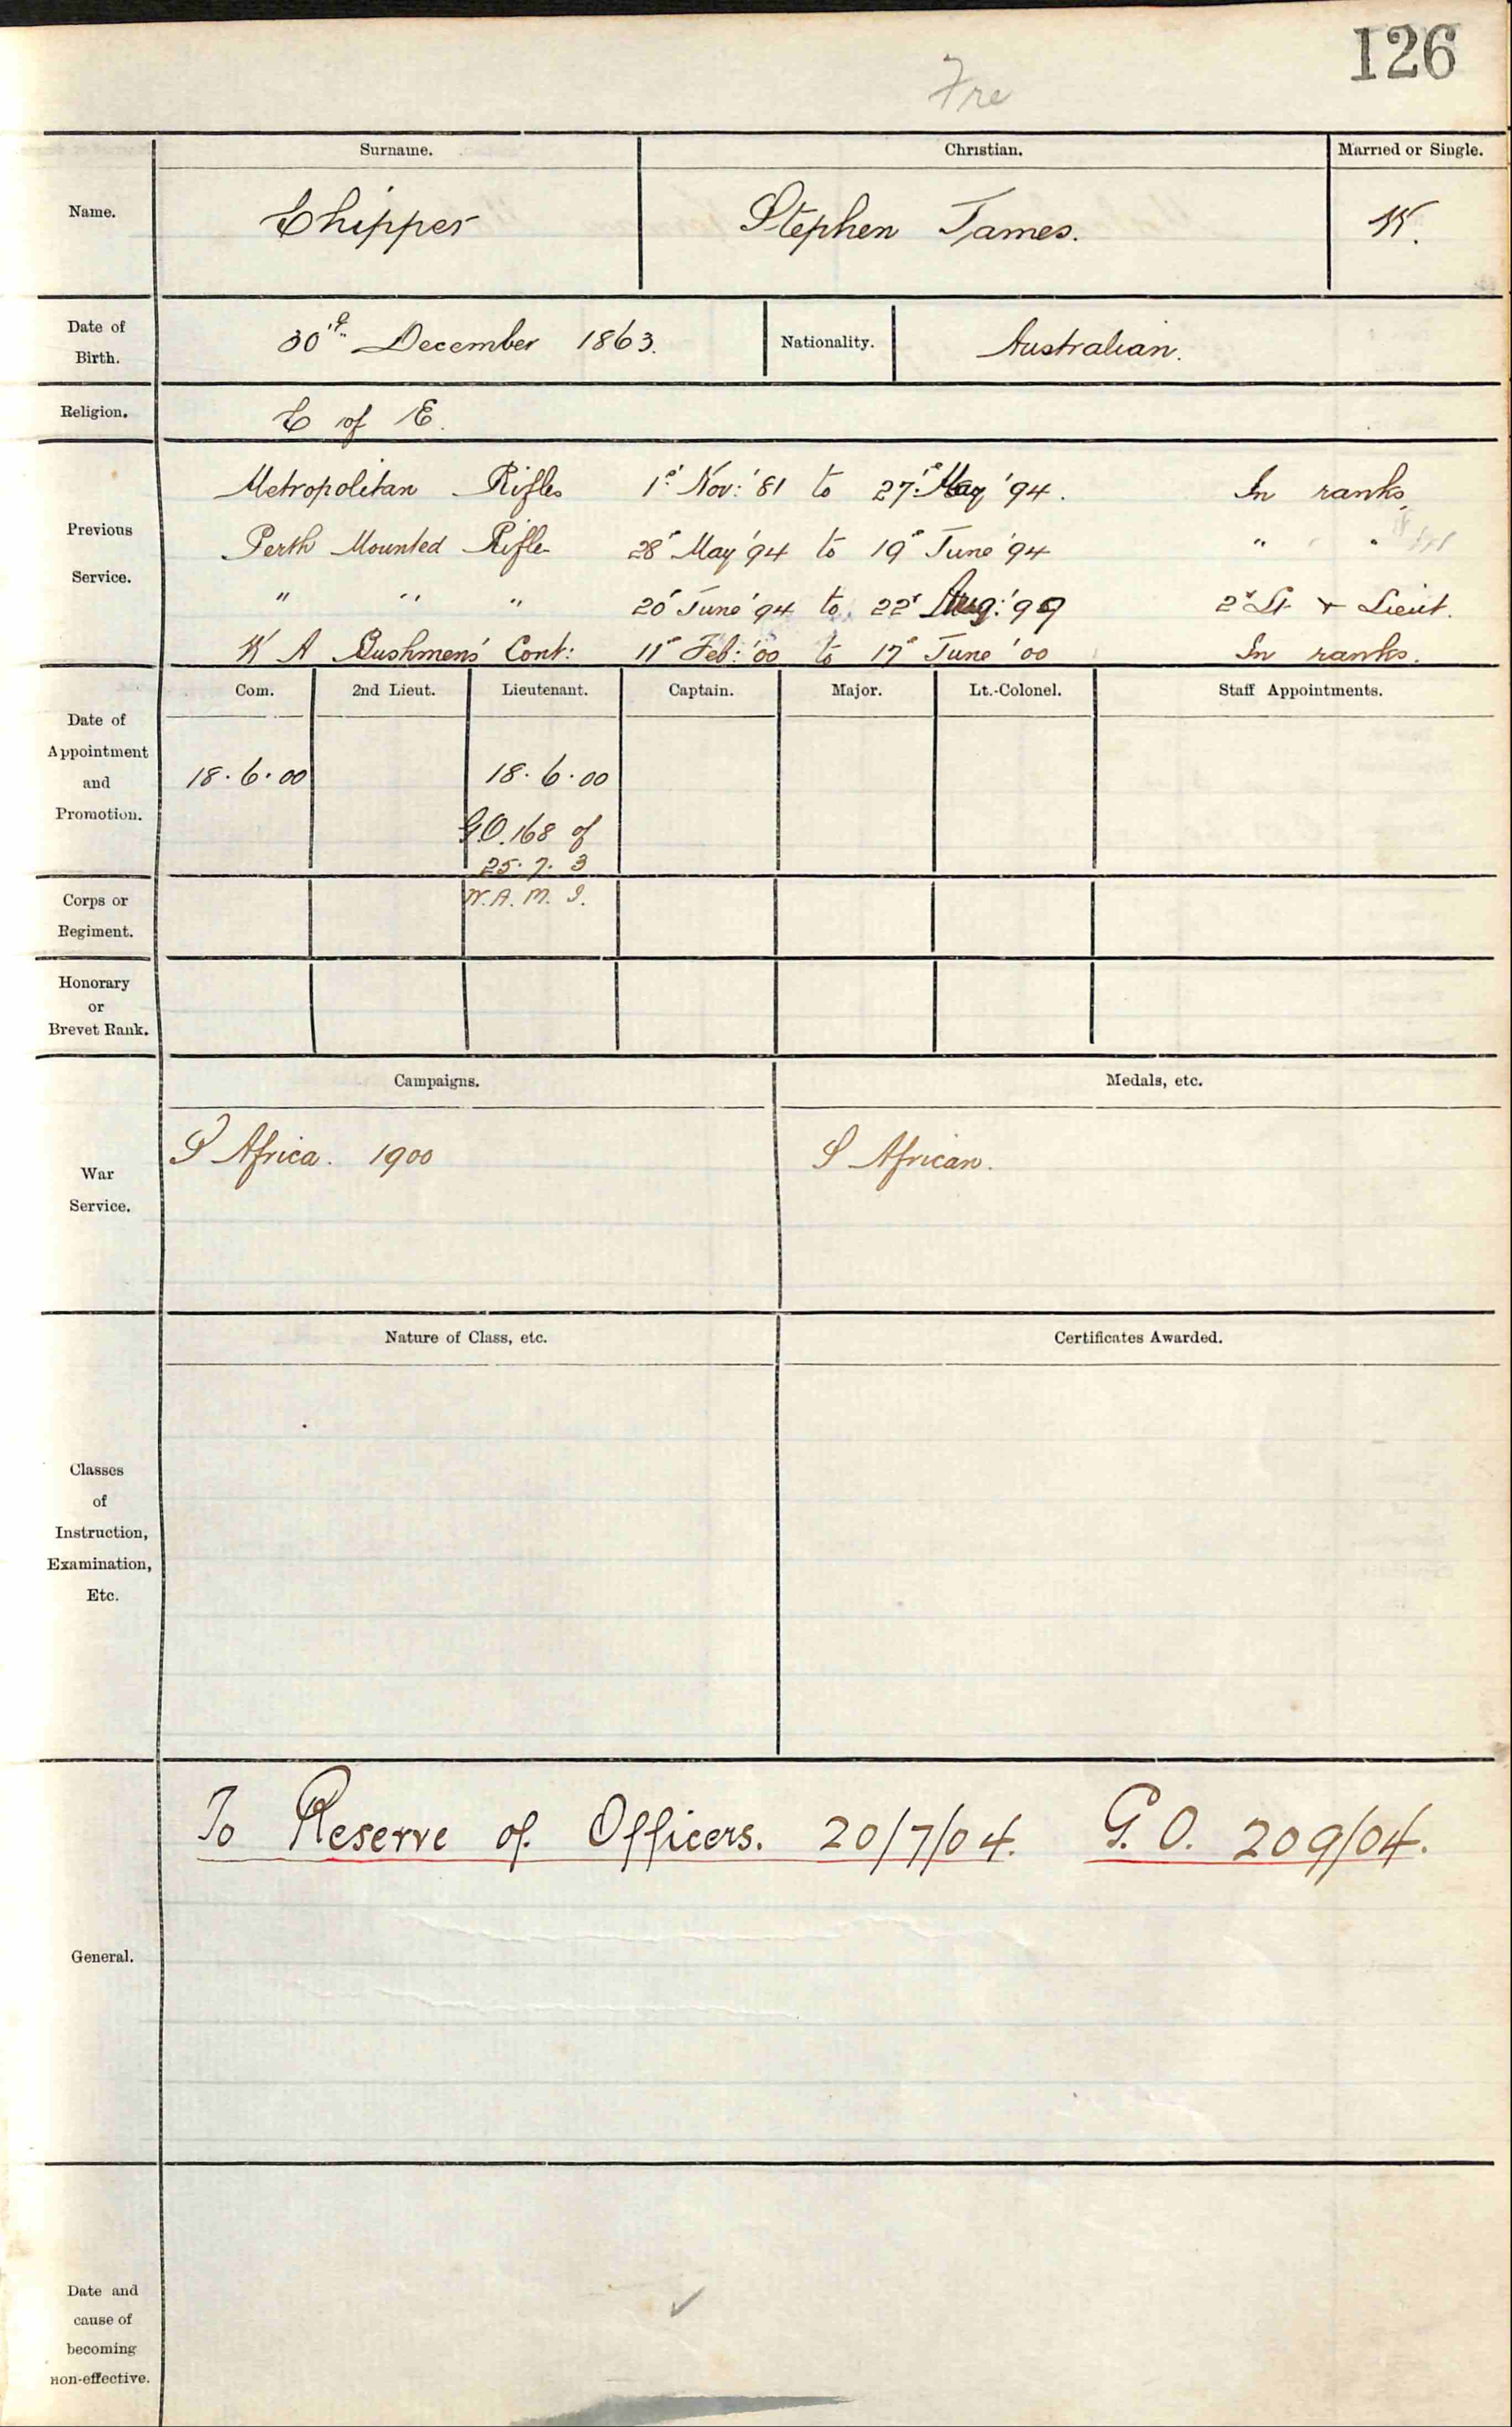 126
Fre
Surname. Christian. Married or Single.
Name. Chipper Stephen James. W.
Date of Birth. 30th December 1863. Nationality. Australian.
Religion. C of E.
Previous Service.
Metropolitan Rifles 1st Nov: '81 to 27th May '94. In ranks.
Perth Mounted Rifles 28th May '94 to 19th June '94 " "
" " " 20th June '94 to 22d Aug: '99 2d Lt + Lieut.
W A Bushmens' Cont: 11th Feb: '00 to 17th June '00 In ranks.
Date of Appointment and Promotion.
Com. 2nd Lieut. Lieutenant. Captain. Major. Lt.-Colonel. Staff Appointments.
18.6.00 18.6.00
G.O. 168 of
25.7.3
Corps or Regiment. W.A.M.I.
Honorary or Brevet Rank.
War Service.
Campaigns. Medals, etc.
S Africa. 1900 S African.
Nature of Class, etc. Certificates Awarded.
Classes of Instruction, Examination, Etc.
General.
To Reserve of Officers. 20/7/04. G.O. 209/04.
Date and cause of becoming non-effective.